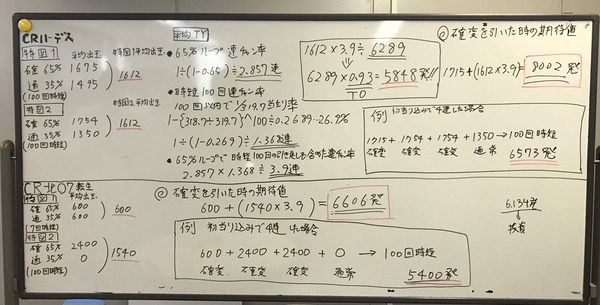 CRハーデス
特図1 平均出玉 特図1平均出玉
確 65% 1675
通 35% 1495
1612
(100回時短)
特図2 特図2平均出玉
確 65% 1754
通 35% 1350
1612
(100回時短)
平均TY
• 65%ループ連チャン率
1÷(1-0.65)≒2.857連
• 時短100回連チャン率
100回以内で1/319.7当たり率
1-(318.7÷319.7)^100≒0.2689=26.9%
1÷(1-0.269)≒1.368連
• 65%ループで時短100回の引き戻しも含めた連チャン率
2.857×1.368≒3.9連
1612×3.9≒6289
⇓
6289×0.93=5848発!!
T0
◎確変を引いた時の期待値
1715+(1612×3.9)=8002発
例 初当り込みで4連した場合
1715+1754+1754+1350→100回時短
確変 確変 確変 通常 6573発
CR北斗7転生
特図1 平均出玉
確 65% 600
通 35% 600
600
(7回時短)
特図2
確 65% 2400
通 35% 0
1540
(100回時短)
◎確変を引いた時の期待値
600+(1540×3.9)=6606発
例 初当り込みで4連した場合
600+2400+2400+0→100回時短
確変 確変 確変 通常
5400発
6.134発